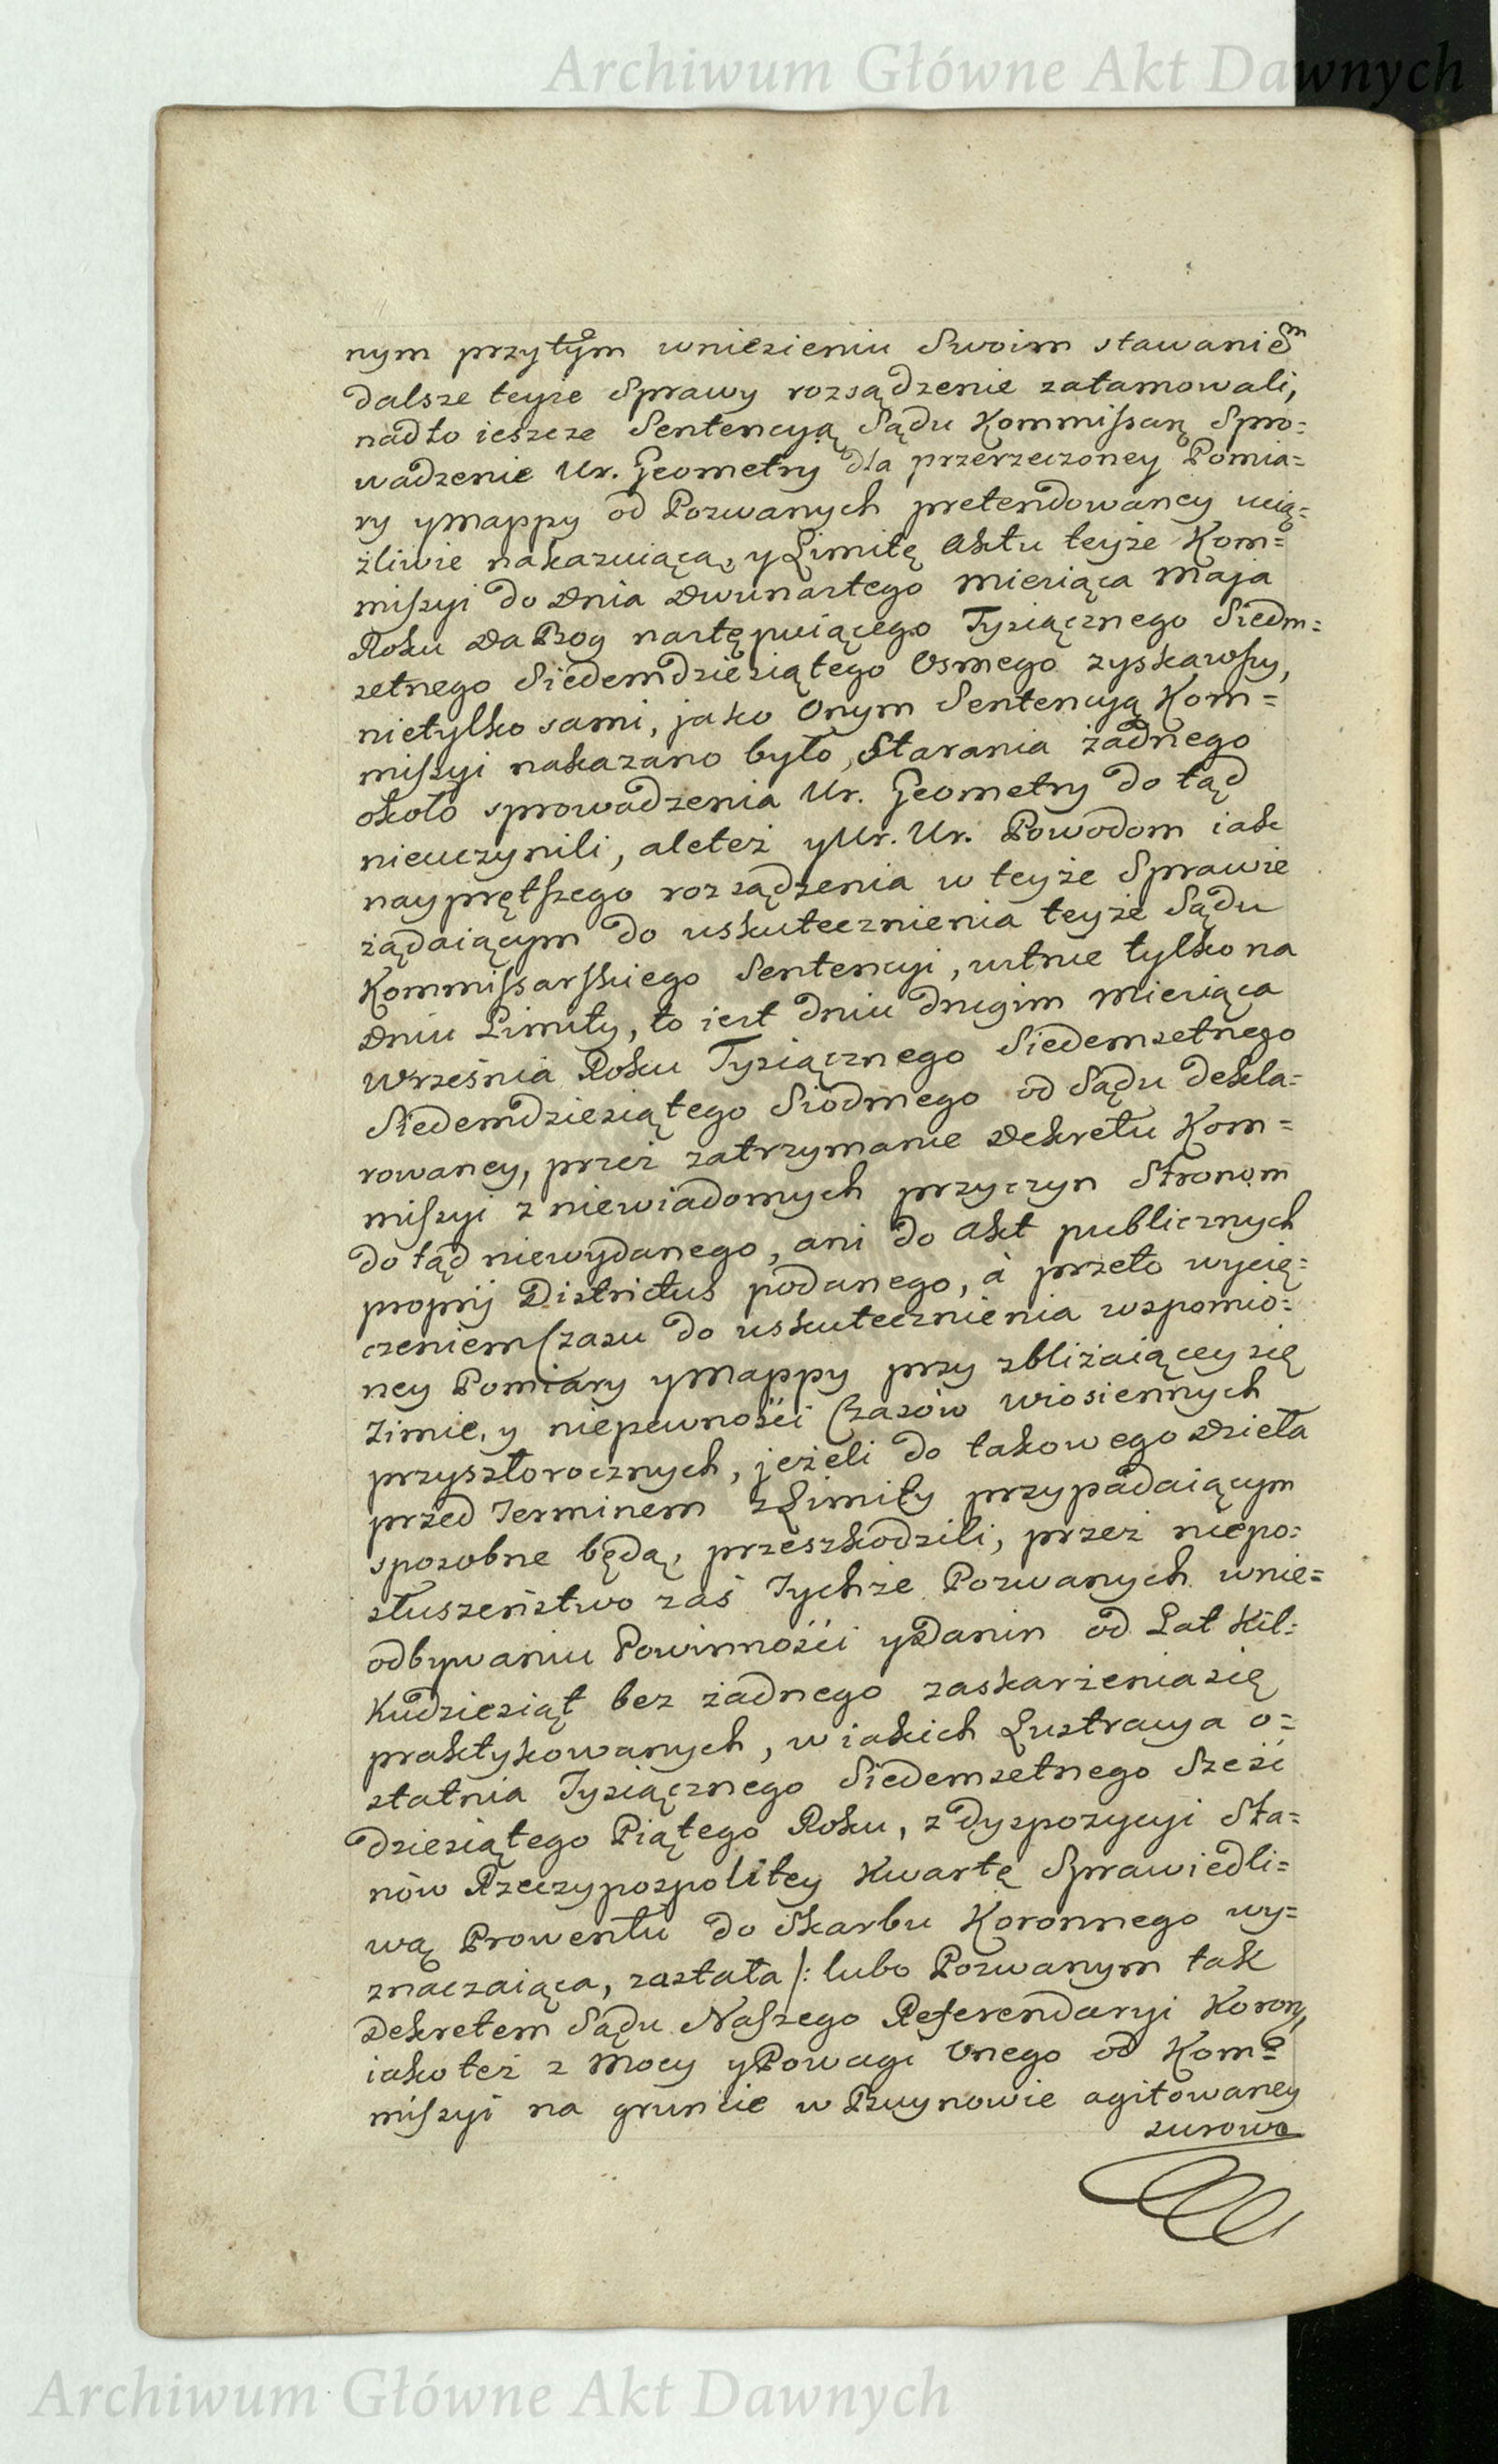 Archiwum Główne Akt Dawnych
nym przytym wniesieniu Swoim stawaniem
dalsze teyże Sprawy rozsądzenie zatamowali,
nadto ieszcze Sentencyą Sądu Kommissar. Spro=
wadzenie Ur. Geometry dla przerzeczoney Pomia=
ry y Mappy od Pozwanych pretendowaney ucią=
żliwie nakazuiącą, y Limitę Aktu teyże Kom=
missyi do Dnia Dwunastego Miesiąca Maja
Roku Da Bog następuiącego Tysiącznego Siedm=
setnego Siedemdziesiątego Osmego zyskawszy,
nietylko sami, jako Onym Sentencyą Kom=
missyi nakazano było, Starania żadnego
około sprowadzenia Ur. Geometry do tąd
nieuczynili, aleteż y Ur. Ur. Powodom iak
nayprętszego rozsądzenia w teyże Sprawie
żądaiącym do uskutecznienia teyże Sądu
Kommissarskiego Sentencyi, ustnie tylko na
Dniu Limity, to iest dniu drugim Miesiąca
Września Roku Tysiącznego Siedemsetnego
Siedemdziesiątego Siodmego od Sądu dekla=
rowaney, przez zatrzymanie Dekretu Kom=
missyi z niewiadomych przyczyn Stronom
do tąd niewydanego, ani do Akt publicznych
proprij Districtus podanego, à przeto wycię=
czeniem Czasu do uskutecznienia wspomio=
ney Pomiary y Mappy przy zbliżaiącey się
Zimie, y niepewnośći Czasów wiosiennych
przyszłorocznych, jeżeli do takowego Dzieła
przed Terminem z Limity przypadaiącym
sposobne będą, przeszkodzili, przez niepo=
słuszeństwo zaś Tychże Pozwanych wnie=
odbywaniu Powinnośći y Danin od Lat kil=
kudziesiąt bez żadnego zaskarżenia się
praktykowanych, w iakich Lustracya o=
statnia Tysiącznego Siedemsetnego Sześć
dziesiątego Piątego Roku, z dyspozycyi Sta=
nów Rzeczypospolitey Kwartę Sprawiedli=
wą Prowentu do Skarbu Koronnego wy=
znaczaiąca, zastała /: lubo Pozwanym tak
Dekretem Sądu Naszego Referendaryi Koron,
iako też z Mocy y Powagi Onego od Kom=
missyi na gruncie w Ruynowie agitowaney
surowo
Archiwum Główne Akt Dawnych